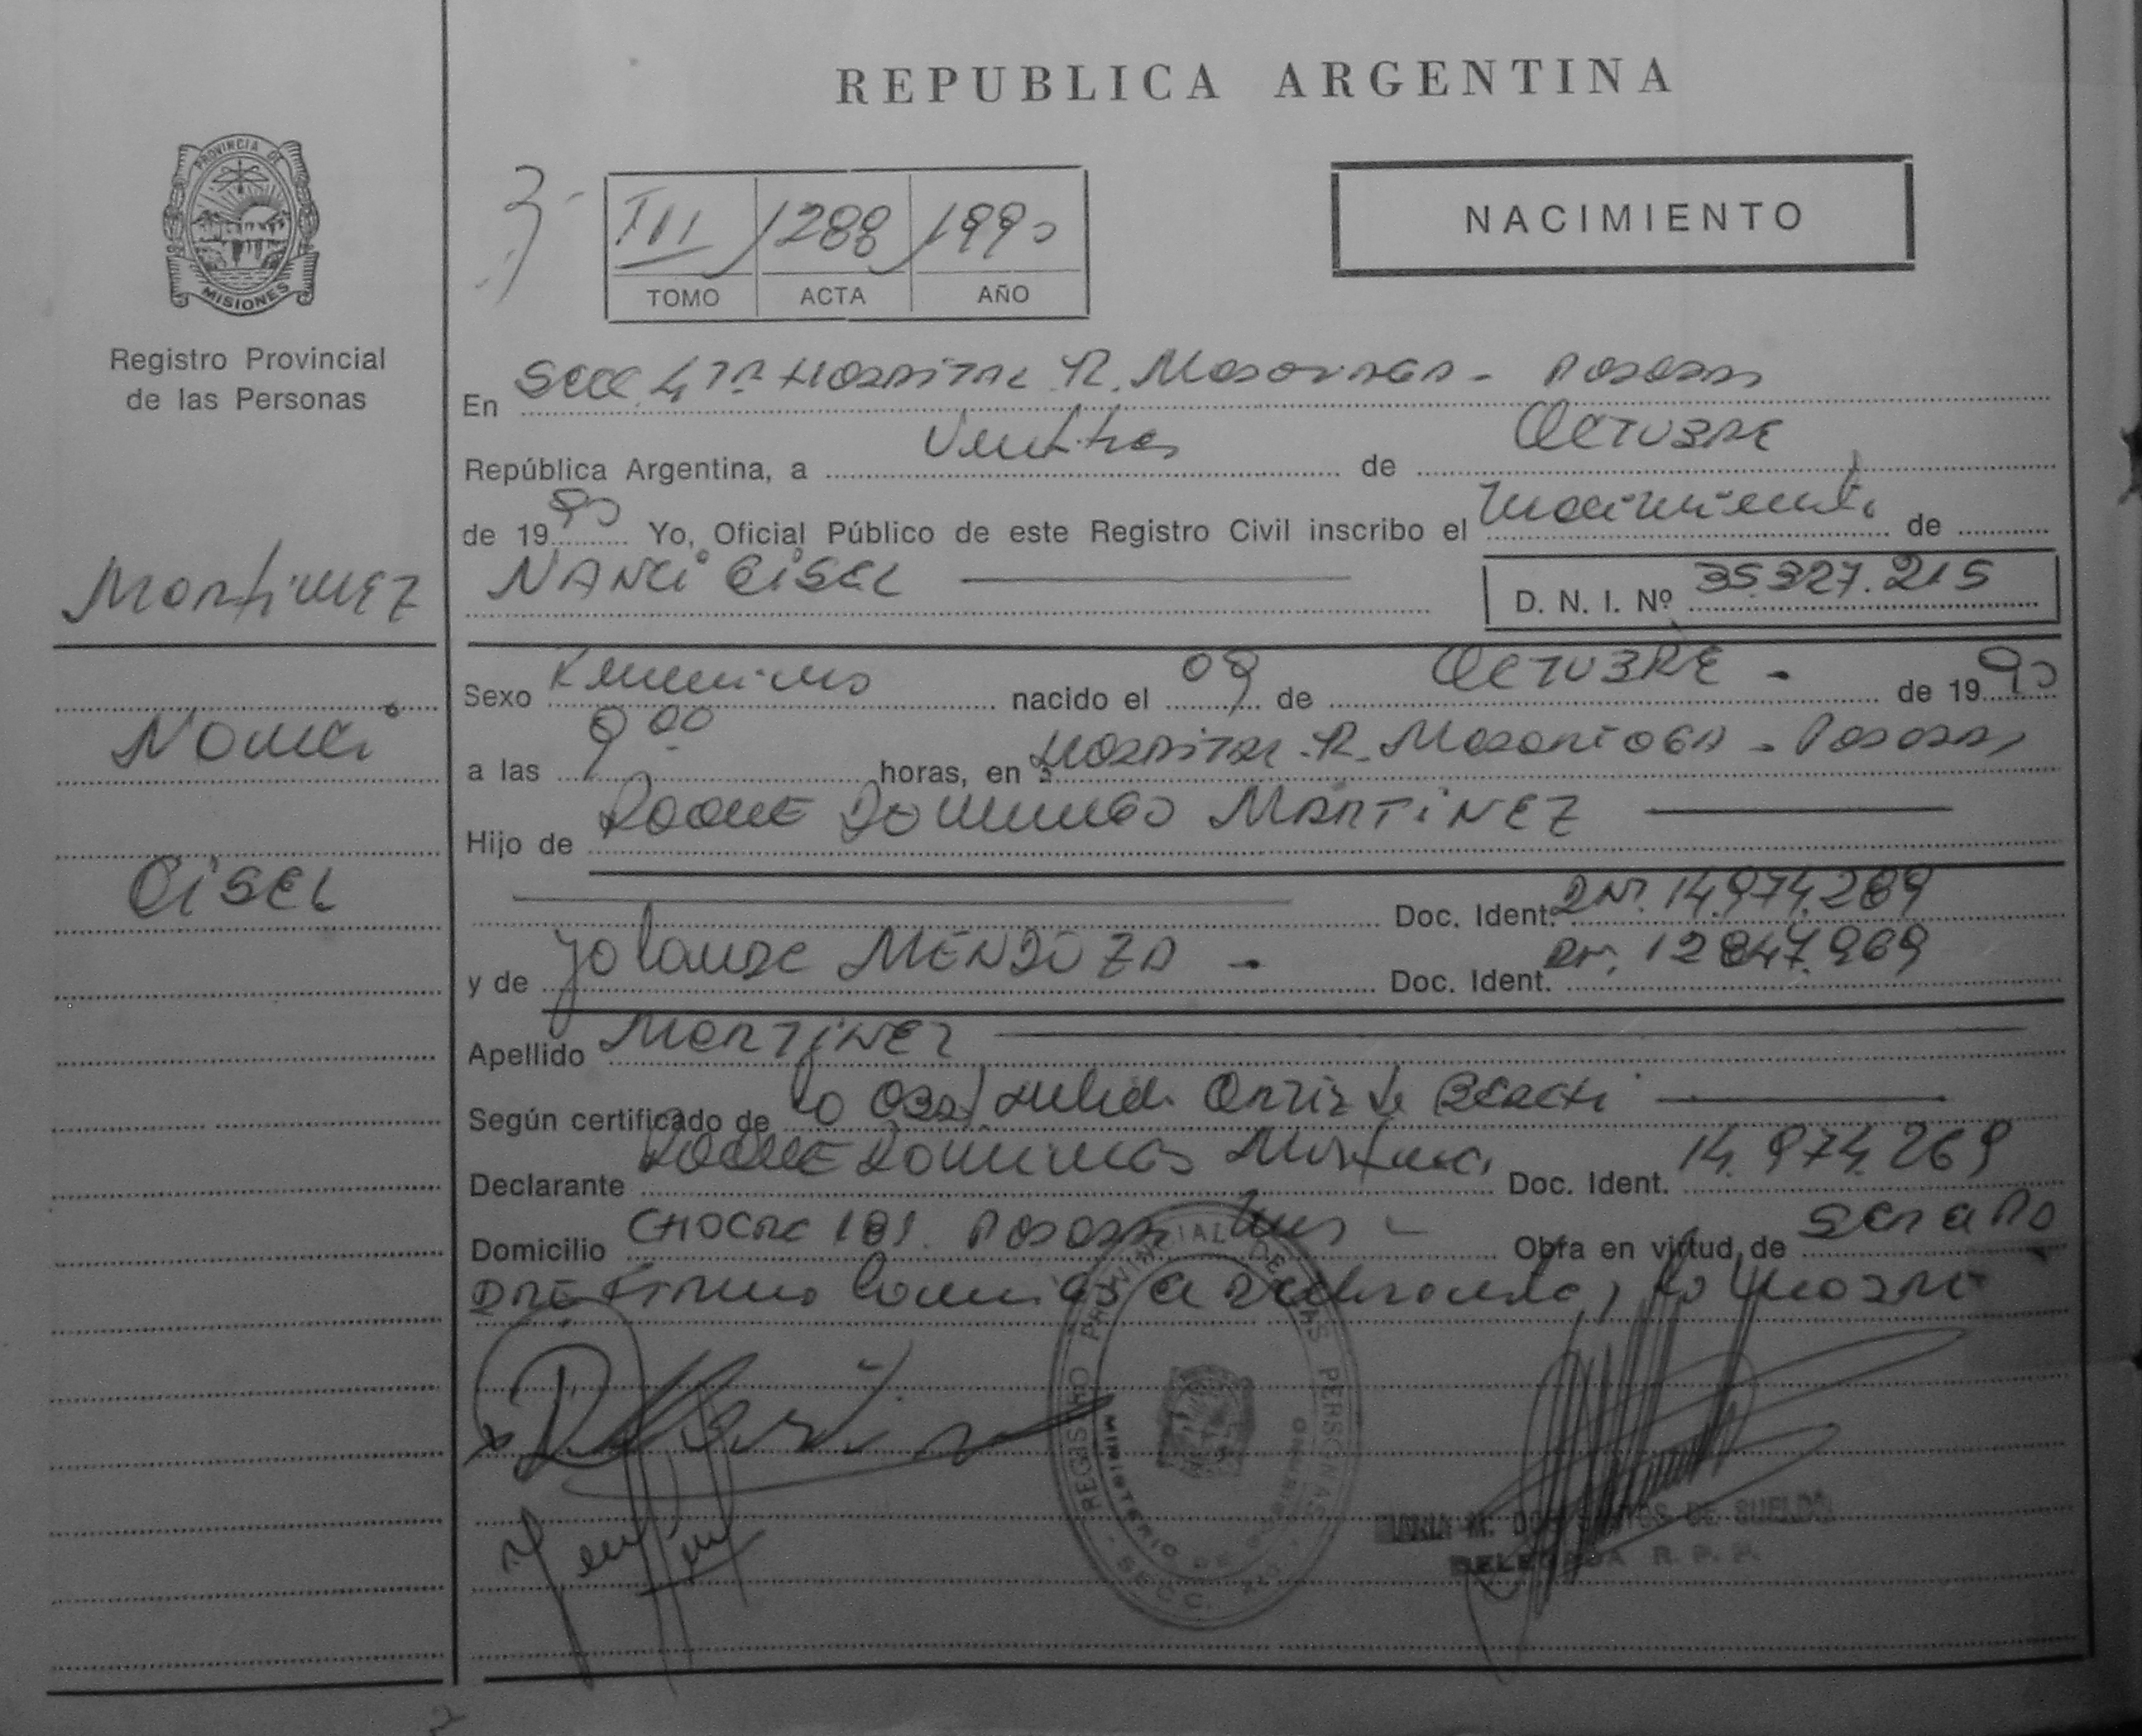 REPUBLICA ARGENTINA
PROVINCIA DE
MISIONES
Registro Provincial
de las Personas
III 1288 1990
TOMO ACTA AÑO
NACIMIENTO
En Secc 4ta Hospital R. Madariaga - Posadas
República Argentina, a Veintitres de OCTUBRE
de 1990 Yo, Oficial Público de este Registro Civil inscribo el nacimiento de
NANCi GiSEL
D. N. I. Nº 35.327.215
Martinez
Nanci
GiSEL
Sexo Femenino nacido el 09 de OCTUBRE - de 1990
a las 9 00 horas, en Hospital R. Madariaga - Posadas
Hijo de ROQUE DOMINGO MARTiNEZ
Doc. Ident. DNI. 14.974.269
y de Yolanda MENDOZA - Doc. Ident. 12 847.969
Apellido MARTiNEZ
Según certificado de la Obst
Declarante ROQUE DOMINGO Martinez Doc. Ident. 14.974.269
Domicilio 181. Posadas Mns - Obra en virtud de ser el Pa
DRE Firma Conmigo el declarante y la MADRE
REGISTRO PROVINCIAL DE LAS PERSONAS
MINISTERIO DE
SECC. 4ta
MARIA M. DOS SANTOS DE SUELDO
DELEGADA R. P. P.